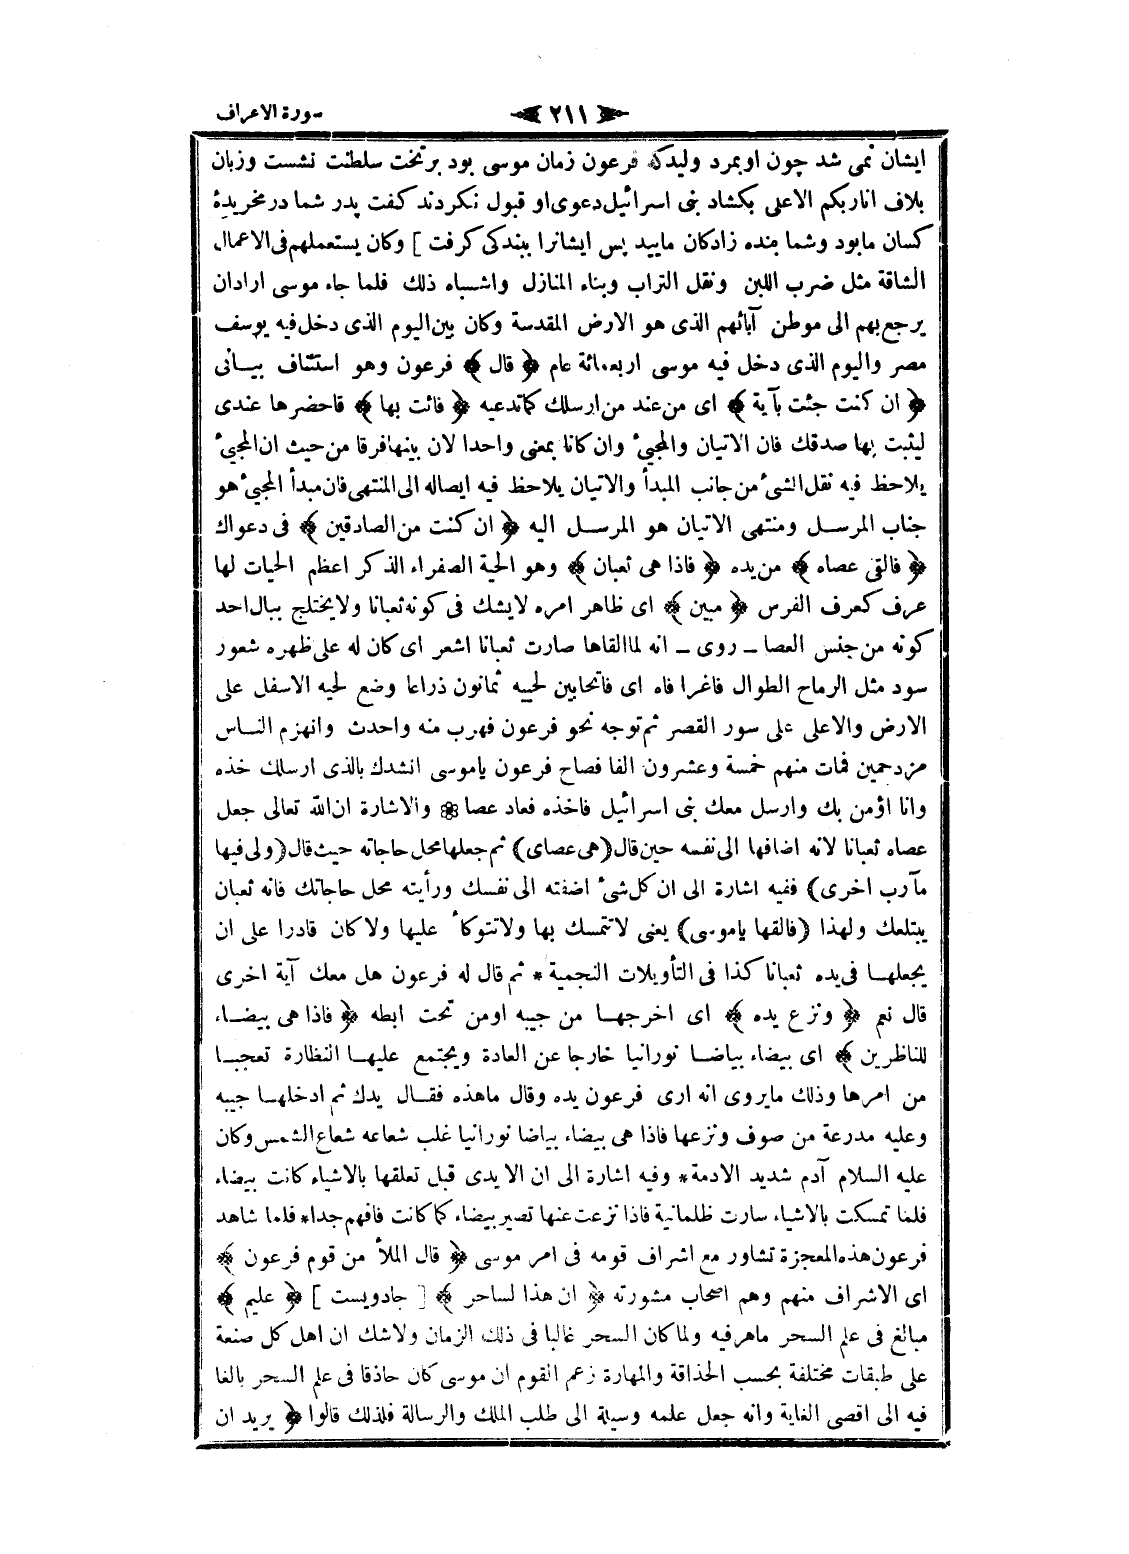 سورة الاعراف
٢١١
ایشان نمی شد چون او بمرد ولیدکه فرعون زمان موسی بود بر تخت سلطنت نشست وزبان
بلاف اناربکم الاعلی بکشاد بنی اسرائیل دعوی او قبول نکردند کفت پدر شما درمخریدۀ
کسان مابود وشما بنده زادکان مایید پس ایشانرا ببندکی کرفت ] وکان یستعملهم فی الاعمال
الشاقة مثل ضرب اللبن ونقل التراب وبناء المنازل واشباه ذلك فلما جاء موسی ارادان
یرجع بهم الی موطن آبائهم الذی هو الارض المقدسة وکان بین الیوم الذی دخل فیه یوسف
مصر والیوم الذی دخل فیه موسی اربعمائة عام ﴿ قال ﴾ فرعون وهو استئناف بیـانی
﴿ ان کنت جئت بآیة ﴾ ای من عند من ارسلك کماتدعیه ﴿ فائت بها ﴾ فاحضرها عندی
لیثبت بها صدقك فان الاتیان والمجیئ وان کانا بمعنی واحدا لان بینهافرقا من حیث ان المجیئ
یلاحظ فیه نقل الشئ من جانب المبدأ والاتیان یلاحظ فیه ایصاله الی المنتهی فان مبدأ المجیئ هو
جناب المرسـل ومنتهی الاتیان هو المرسـل الیه ﴿ ان کنت من الصادقین ﴾ فی دعواك
﴿ فالقی عصاه ﴾ من یده ﴿ فاذا هی ثعبان ﴾ وهو الحیة الصفراء الذکر اعظم الحیات لها
عرف کعرف الفرس ﴿ مبین ﴾ ای ظاهر امره لایشك فی کونه ثعبانا ولا یختلج ببال احد
کونه من جنس العصا ـ روی ـ انه لماالقاها صارت ثعبانا اشعر ای کان له علی ظهره شعور
سود مثل الرماح الطوال فاغرا فاه ای فاتحابین لحییه ثمانون ذراعا وضع لحیه الاسفل علی
الارض والاعلی علی سور القصر ثم توجه نحو فرعون فهرب منه واحدث وانهزم النـاس
مزدحمین فمات منهم خمسة وعشرون الفا فصاح فرعون یاموسی انشدك بالذی ارسلك خذه
وانا اؤمن بك وارسل معك بنی اسرائیل فاخذه فعاد عصا ❁ والاشارة ان الله تعالی جعل
عصاه ثعبانا لانه اضافها الی نفسه حین قال (هی عصای) ثم جعلها محل حاجاته حیث قال (ولی فیها
مآرب اخری) ففیه اشارة الی ان کل شئ اضفته الی نفسك ورأیته محل حاجاتك فانه ثعبان
یبتلعك ولهذا (فالقها یاموسی) یعنی لاتتمسك بها ولاتتوکأ علیها ولا کان قادرا علی ان
یجعلهـا فی یده ثعبانا کذا فی التأویلات النجمیة * ثم قال له فرعون هل معك آیة اخری
قال نعم ﴿ ونزع یده ﴾ ای اخرجهـا من جیبه اومن تحت ابطه ﴿ فاذا هی بیضـاء
للناظرین ﴾ ای بیضاء بیاضـا نورانیا خارجا عن العادة ویجتمع علیهـا النظارة تعجبـا
من امرها وذلك مایروی انه اری فرعون یده وقال ماهذه فقـال یدك ثم ادخلهـا جیبه
وعلیه مدرعة من صوف ونزعها فاذا هی بیضاء بیاضا نورانیا غلب شعاعه شعاع الشمس وکان
علیه السلام آدم شدید الادمة * وفیه اشارة الی ان الایدی قبل تعلقها بالاشیاء کانت بیضاء
فلما تمسکت بالاشیاء سارت ظلمانیة فاذا نزعت عنها تصیر بیضاء کما کانت فافهم جدا * فلما شاهد
فرعون هذه المعجزة تشاور مع اشراف قومه فی امر موسی ﴿ قال الملأ من قوم فرعون ﴾
ای الاشراف منهم وهم اصحاب مشورته ﴿ ان هذا لساحر ﴾ [ جادویست ] ﴿ علیم ﴾
مبالغ فی علم السحر ماهرفیه ولما کان السحر غالبا فی ذلك الزمان ولاشك ان اهل کل صنعة
علی طبقات مختلفة بحسب الحذاقة والمهارة زعم القوم ان موسی کان حاذقا فی علم السحر بالغا
فیه الی اقصی الغایة وانه جعل علمه وسیلة الی طلب الملك والرسالة فلذلك قالوا ﴿ یرید ان